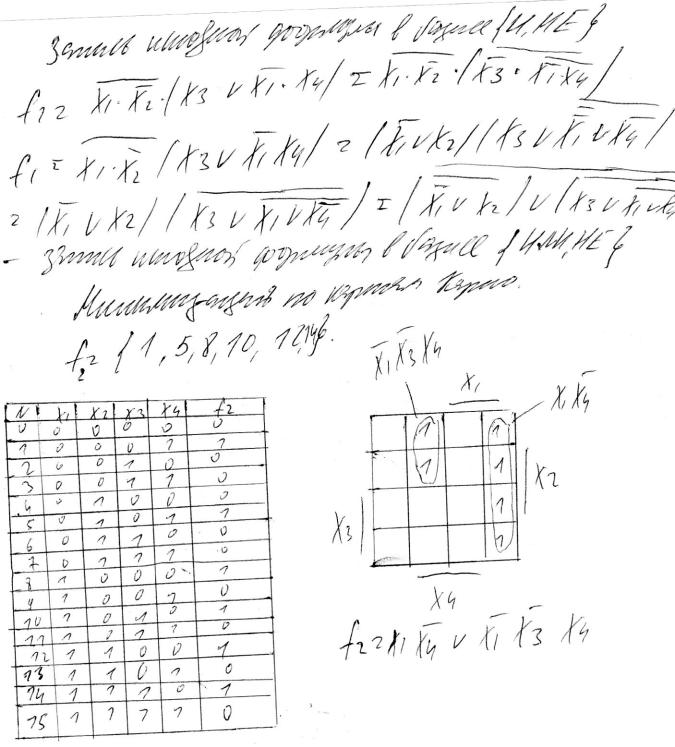 Запись исходной формулы в базисе {И, НЕ}
f₁ = \overline{x₁·\overline{x₂}}·(x₃ ∨ \overline{x₁}·x₄) = \overline{x₁·\overline{x₂}}·(\overline{\overline{x₃}·\overline{\overline{x₁}x₄}})
f₁ = \overline{x₁·\overline{x₂}}(x₃ ∨ \overline{x₁}x₄) = (\overline{x₁} ∨ x₂)(x₃ ∨ \overline{\overline{\overline{x₁}} ∨ \overline{x₄}})
- запись исходной формулы в базисе {ИЛИ, НЕ}
Минимизация по картам Карно.
f₂ = {1, 5, 8, 10, 12, 14}.
N x₁ x₂ x₃ x₄ f₂
0 0 0 0 0 0
1 0 0 0 1 1
2 0 0 1 0 0
3 0 0 1 1 0
4 0 1 0 0 0
5 0 1 0 1 1
6 0 1 1 0 0
7 0 1 1 1 0
8 1 0 0 0 1
9 1 0 0 1 0
10 1 0 1 0 1
11 1 0 1 1 0
12 1 1 0 0 1
13 1 1 0 1 0
14 1 1 1 0 1
15 1 1 1 1 0
\overline{x₁}\overline{x₃}x₄
x₁
x₁\overline{x₄}
1 1
1 1
1
1
x₂
x₃
x₄
f₂ = x₁\overline{x₄} ∨ \overline{x₁}\overline{x₃}x₄